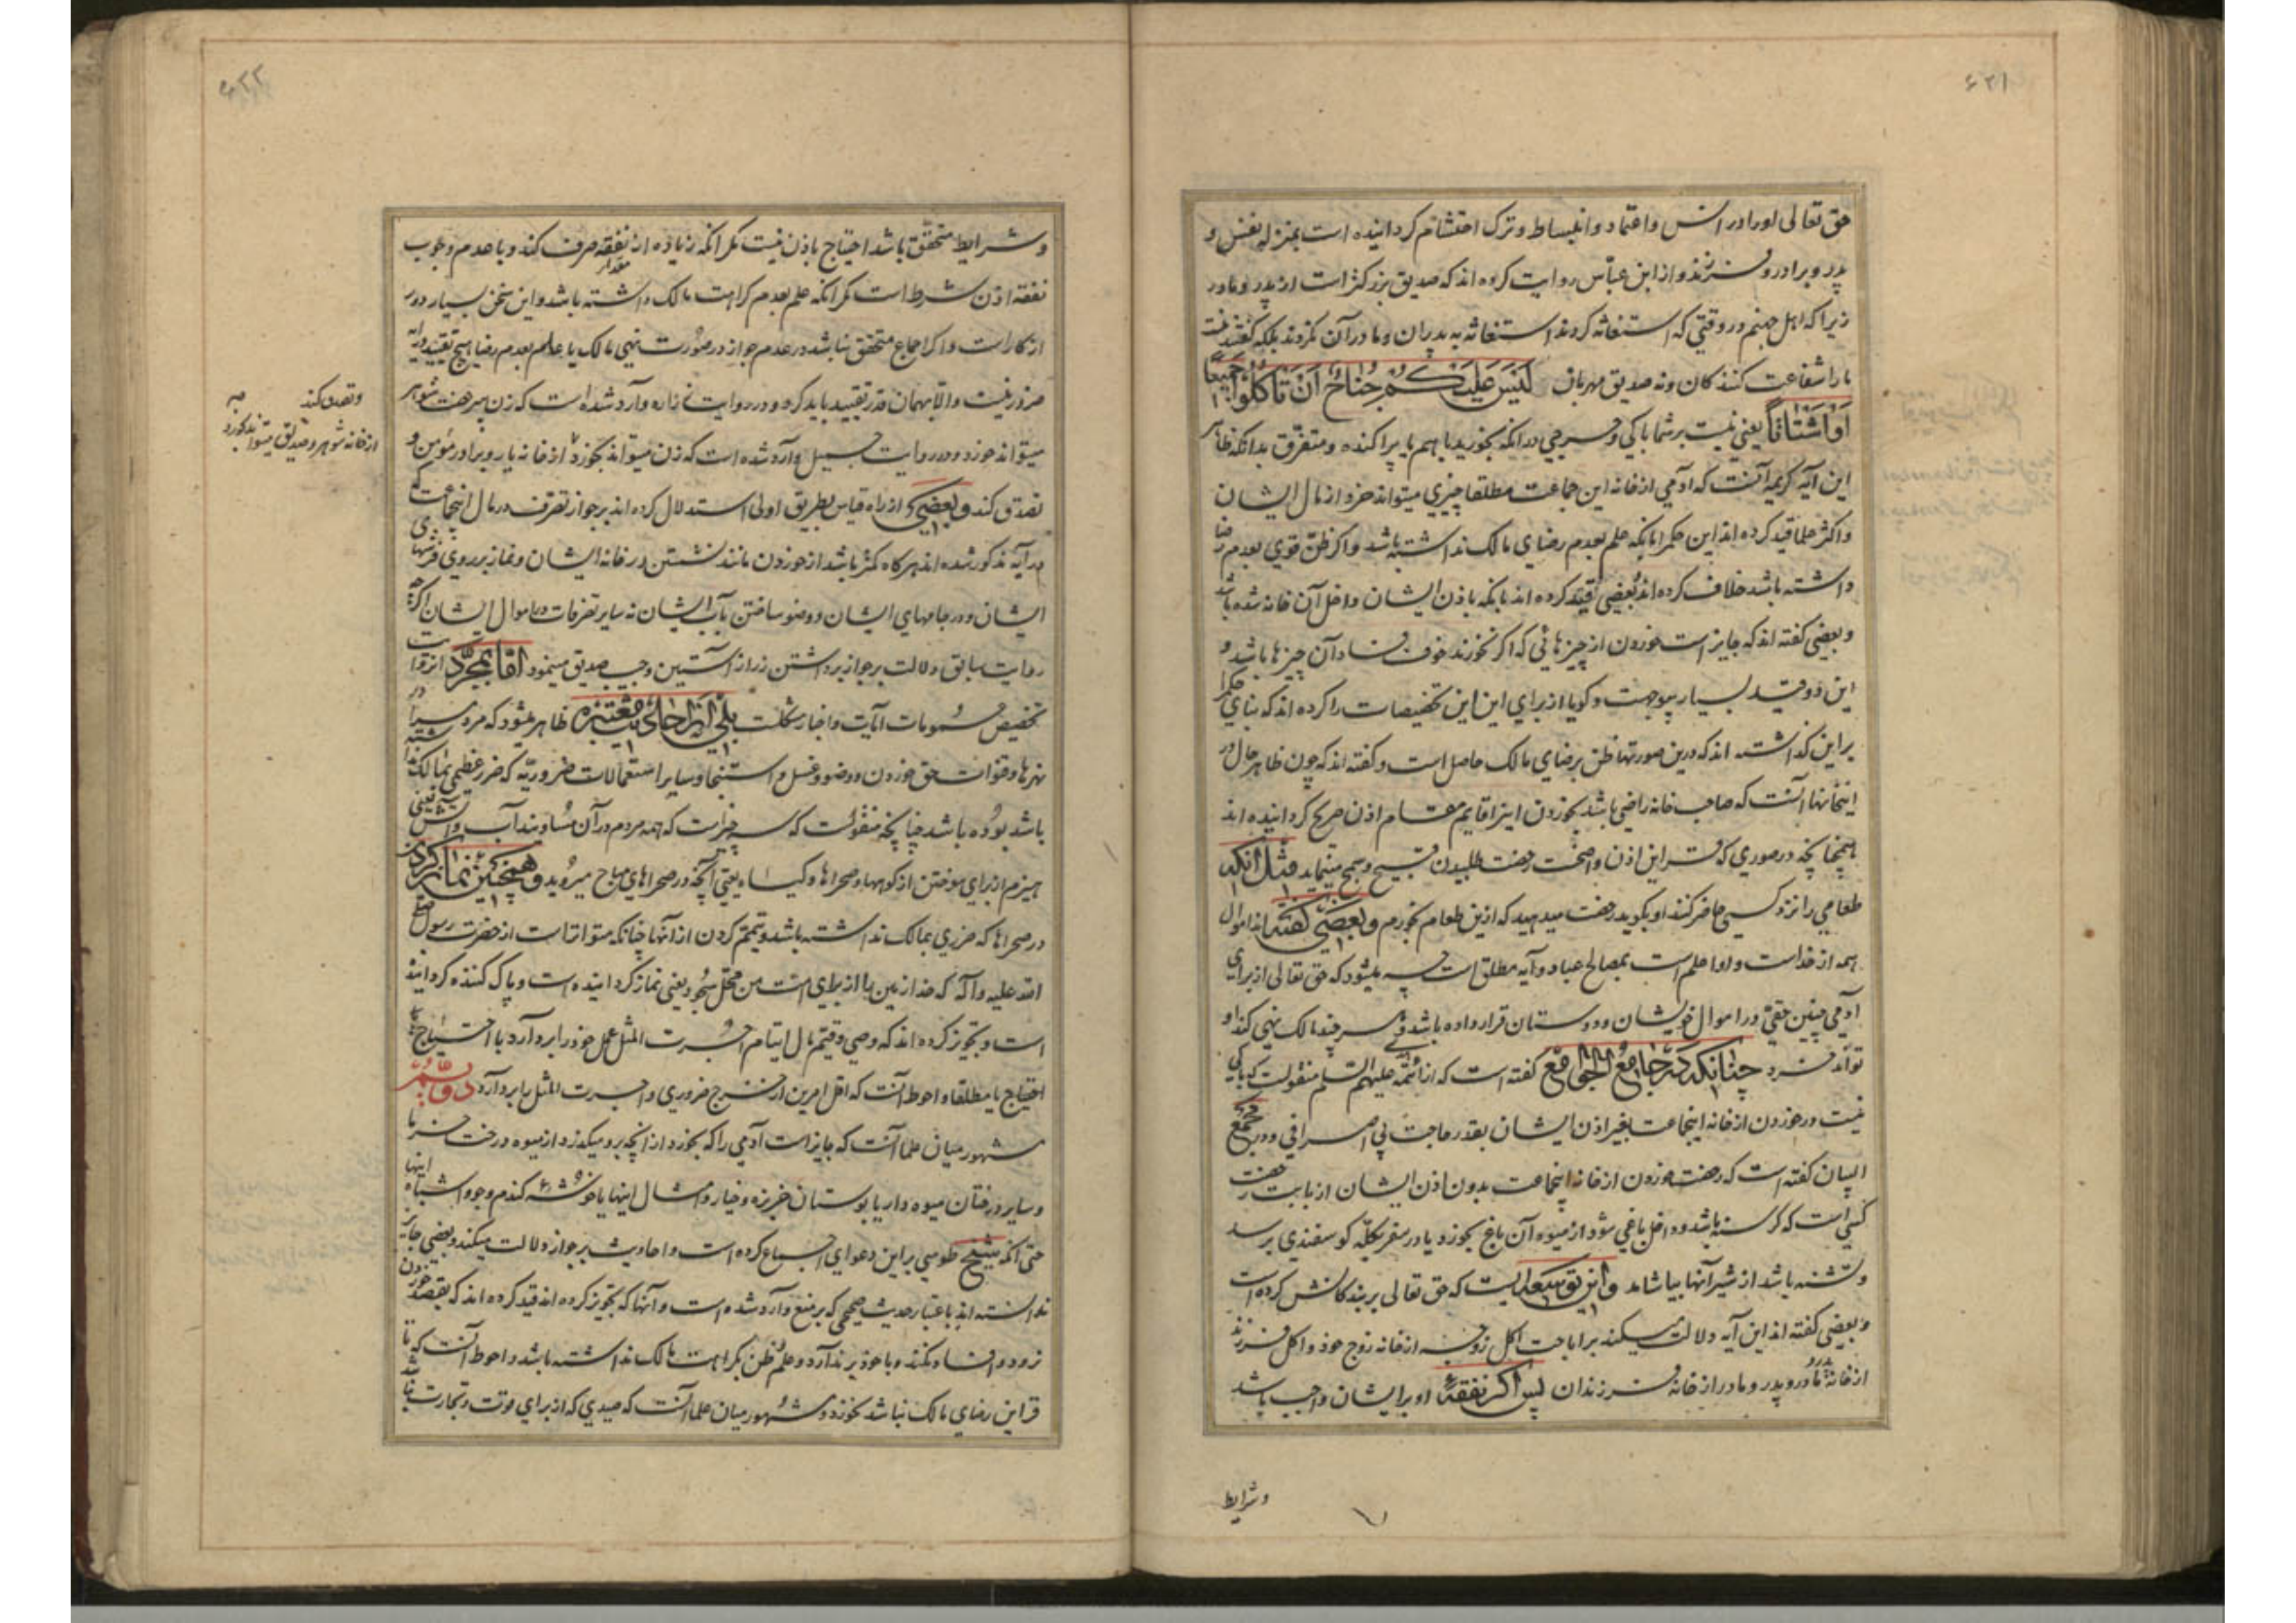 ۶۲۱
حق تعالی او را در انس و اعتماد و انبساط و ترک احتشام گردانیده است بمنزله نفس و
پدر و برادر و فرزند و از ابن عباس روایت کرده اند که صدیق بزرگتر است از پدر و مادر
زیرا که اهل جهنم در وقتی که استغاثه کردند استغاثه به پدران و مادران نکردند بلکه گفتند نیست
ما را شفاعت کنند کان و نه صدیق مهربان لَیْسَ عَلَیْکُمْ جُنَاحٌ اَنْ تَأْکُلُوا جَمِیعًا
اَوْ اَشْتَاتًا یعنی نیست بر شما باکی و حرجی در آنکه بخورید با هم یا پراکنده و متفرق بدانکه ظاهر
این آیه کریمه آنست که آدمی از خانه این جماعت مطلقا چیزی میتواند خورد از مال ایشان
و اکثر علما قید کرده اند این حکم را بانکه علم بعدم رضای مالک نداشته باشد و اکر ظن قوی بعدم رضا
داشته باشد خلاف کرده اند و بعضی قید کرده اند بانکه باذن ایشان داخل آن خانه شده باشد
و بعضی گفته اند که جایز است خوردن از چیزهائی که اکر نخورند خوف فساد آن چیزها باشد و
این دو قید بسیار بیوجهست و کویا از برای این این تخصیصات را کرده اند که بنای حکم را
بر این گذاشته اند که درین صورتها ظن برضای مالک حاصل است و گفته اند که چون ظاهر حال در
اینخانها آنست که صاحب خانه راضی باشد بخوردن اینرا قایم مقام اذن صریح گردانیده اند
همچنانچه در صوری که قراین اذن واضحست رخصت طلبیدن قبیح و سمج مینماید مثل آنکه
طعامی را نزد کسی حاضر کنند او بکوید رخصت میدهید که ازین طعام بخورم و بعضی گفته اند اموال
همه از خداست و او اعلم است بمصالح عباد و آیه مطلق است چه میشود که حق تعالی از برای
آدمی چنین حقی در اموال خویشان و دوستان قرار داده باشد که هر چند مالک نهی کند او
تواند خورد چنانکه در جامع الجوامع گفته است که از ائمه علیهم السلم منقولست که باکی
نیست در خوردن از خانه اینجماعت بغیر اذن ایشان بقدر حاجت بی اسرافی و در مجمع
البیان گفته است که رخصت خوردن از خانه اینجماعت بدون اذن ایشان از بابت رخصت
کسی است که گرسنه باشد و داخل باغی شود از میوه آن باغ بخورد یا در سفر بگله گوسفندی برسد
و تشنه باشد از شیر آنها بیاشامد و این توسعه ایست که حق تعالی بر بندگانش کرده است
و بعضی گفته اند این آیه دلالت میکند بر اباحت اکل زوجه از خانه زوج خود و اکل فرزند
از خانه پدر و مادر و پدر و مادر از خانه فرزندان پس اکر نفقه او بر ایشان واجب باشد
و شرایط
۶۲۲
و شرایط متحقق باشد احتیاج باذن نیست مکر آنکه زیاده از مقدار نفقه صرف کند و با عدم وجوب
نفقه اذن شرط است مکر آنکه علم بعدم کراهت مالک داشته باشد و این سخن بسیار دور
از کار است و اکر اجماع متحقق نباشد در عدم جواز در صورت نهی مالک یا علم بعدم رضا هیچ تقیید در آیه
ضرور نیست و الا بهمان قدر تقیید باید کرد و در روایت زراره وارد شده است که زن بیرخصت شوهر
میتواند خورد و در روایت جمیل وارد شده است که زن میتواند بخورد از خانه یار و برادر مؤمن و
تصدق کند و بعضی از راه قیاس بطریق اولی استدلال کرده اند بر جواز تصرف در مال اینجماعت که
در آیه مذکور شده اند هر کاه کمتر باشد از خوردن مانند نشستن در خانه ایشان و نماز بر روی فرشهای
ایشان و در جامهای ایشان و وضو ساختن بآب ایشان نه سایر تصرفات در اموال ایشان اکرچه
روایت سابق دلالت بر جواز برداشتن زر از آستین و جیب صدیق مینمود اما بمجرد این روایت
تخصیص عمومات آیات و اخبار مشکلست بلی از احادیث معتبره ظاهر میشود که مردم را در
نهرها و قنوات حق خوردن و وضو و غسل و استنجا و سایر استعمالات ضروریه که ضرر عظیمی بمالک نداشته
باشد بوده باشد چنانچه منقولست که سه چیز است که همه مردم در آن مساویند آب و آتش یعنی
هیزم از برای سوختن از کوهها و صحراها و کیاه یعنی آنچه در صحراهای مباح میروید و همچنین نماز کردن
در صحراها که ضرری بمالک نداشته باشد و تیمم کردن از آنها چنانکه متواتر است از حضرت رسول صلی
الله علیه و آله که خدا زمین را از برای امت من محل سجود یعنی نماز گردانیده است و پاک کننده گردانیده
است و تجویز کرده اند که وصی و قیم مال ایتام اجرت المثل عمل خود را بردارد با احتیاج یا بی
احتیاج یا مطلقا و احوط آنست که اقل امرین از خرج ضروری و اجرت المثل را بردارد دوّم
مشهور میان علما آنست که جایز است آدمی را که بخورد از آنچه بر او میکذرد از میوه درخت خرما
و سایر درختان میوه دار یا بوستان خربزه و خیار و امثال اینها یا خوشه کندم و جو و اشباه اینها
حتی آنکه شیخ طوسی بر این دعوای اجماع کرده است و احادیث بر جواز دلالت میکند و بعضی جایز
ندانسته اند باعتبار حدیث صحیحی که بر منع وارد شده است و آنها که تجویز کرده اند قید کرده اند که بقصد خوردن
نرود و افساد نکند و با خود بر ندارد و علم و ظن بکراهت مالک نداشته باشد و احوط آنست که تا
قراین رضای مالک نباشد نخورد و مشهور میان علما آنست که صیدی که از برای قوت و تجارت نباشد
و تصدق کند چه
از خانه شوهر و صدیق میتواند خورد